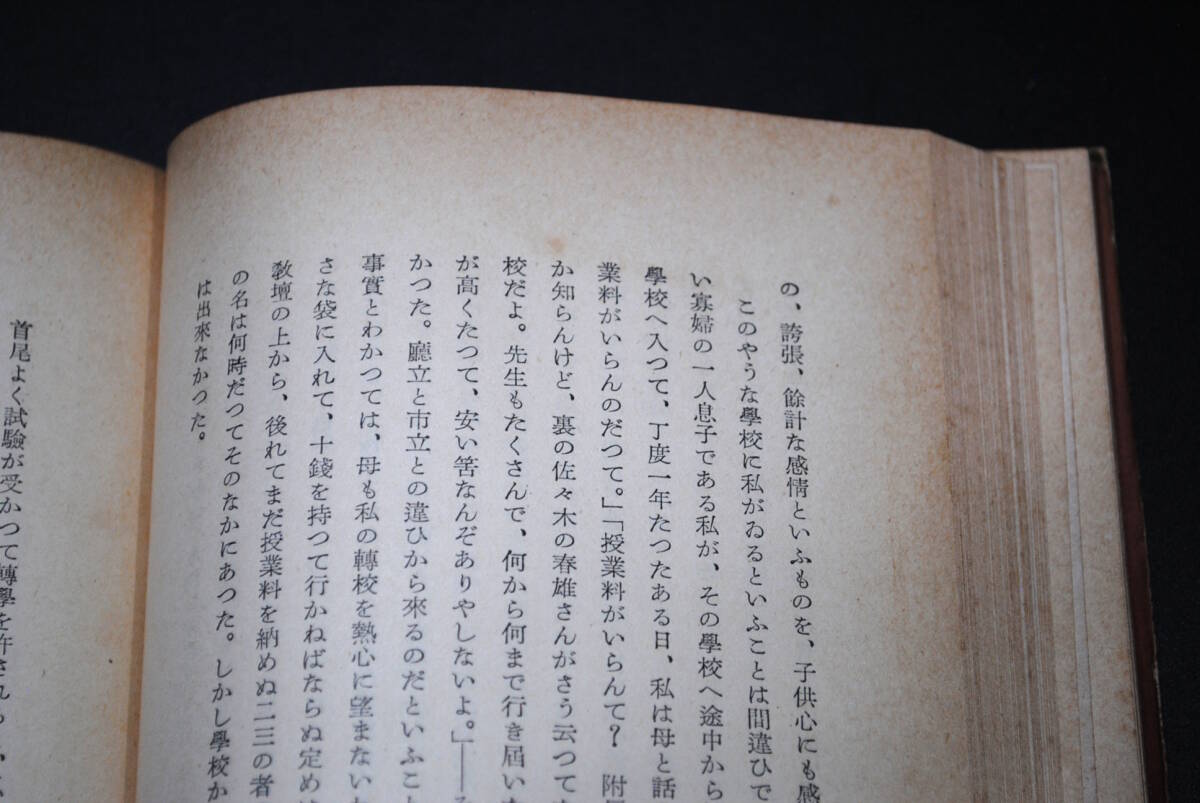 の、誇張、餘計な感情といふものを、子供心にも感
このやうな學校に私がゐるといふことは間違ひで
い寡婦の一人息子である私が、その學校へ途中から
學校へ入つて、丁度一年たつたある日、私は母と話
業料がいらんのだつて。」「授業料がいらんて？　附
か知らんけど、裏の佐々木の春雄さんがさう云つて
校だよ。先生もたくさんで、何から何まで行き屆い
が高くたつて、安い筈なんぞありやしないよ。」――
かつた。廳立と市立との違ひから來るのだといふこ
事實とわかつては、母も私の轉校を熱心に望まない
さな袋に入れて、十錢を持つて行かねばならぬ定め
教壇の上から、後れてまだ授業料を納めぬ二三の者
の名は何時だつてそのなかにあつた。しかし學校か
は出來なかつた。
首尾よく試驗が受かつて轉學を許され